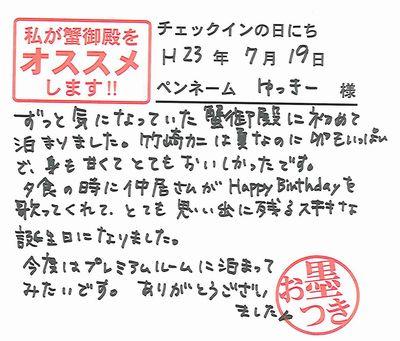 私が蟹御殿を
オススメ
します!!
チェックインの日にち
H 23 年 7 月 19 日
ペンネーム ゆっきー 様
ずっと気になっていた蟹御殿に初めて
泊まりました。竹崎カニは夏なのに卵もいっぱい
で、身も甘くてとてもおいしかったです。
夕食の時に仲居さんがHappy Birthdayを
歌ってくれて、とても思い出に残るステキな
誕生日になりました。
今度はプレミアムルームに泊まって
みたいです。ありがとうござい
ました
お墨つき